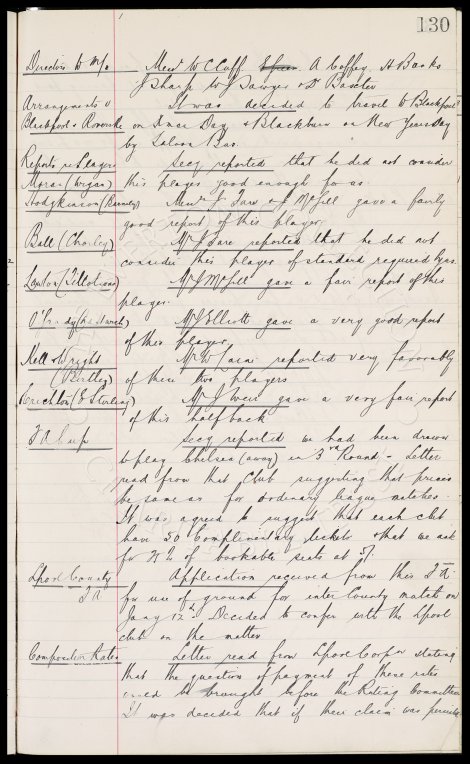 130
Directors to M/c Messrs W Cuff A Coffey H Banks
J Sharp W J Sawyer & Dr Baxter
Arrangements v It was decided to travel to Blackpool
Blackpool & on Xmas Day & Blackburn on New Years Day
by Saloon Bus.
Reports re Players Secy reported that he did not consider
Moran (Wigan) this player good enough for us.
Hodgkinson ( ) Messrs J Fare & J McGill gave a fairly
good report of this player.
Ball (Chorley) Mr J Fare reported that he did not
consider this player of standard required by us.
Lawton (Tillotsons) Mr J McGill gave a fair report of this
player.
O'Grady ( ) Mr J Elliott gave a very good report
of this player.
Kell & Wright Mr W reported very favorably
(Birtley) of these two players
Crichton (E Stirling) Mr J gave a very fair report
of this half back
F A Cup Secy reported we had been drawn
to play Chelsea (away) in 3rd Round - Letter
read from that Club suggesting that prices
be same as for ordinary league matches.
It was agreed to suggest that each club
have 50 Complimentary tickets & that we ask
for of bookable seats at 5/-
Lpool County Application received from this
F A for use of ground for inter County match on
Jany 12th. Decided to confer with the Lpool
club on the matter
Composition Rates Letter read from Lpool Corpn stating
that the question of payment of these rates
be brought before the Rating Committee
It was decided that if their claim was